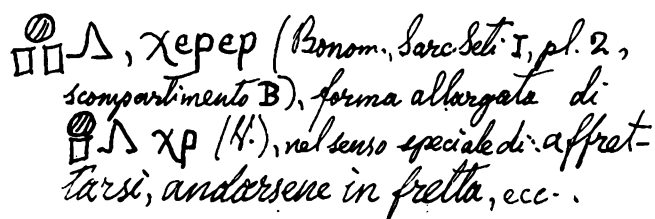 𓐍𓊪𓊪𓂻, χepep (Bonom., Sarc Seti I, pl. 2,
scompartimento B), forma allargata di
𓐍𓊪𓂻 χp (V.), nel senso speciale di: affret-
tarsi, andarsene in fretta, ecc..